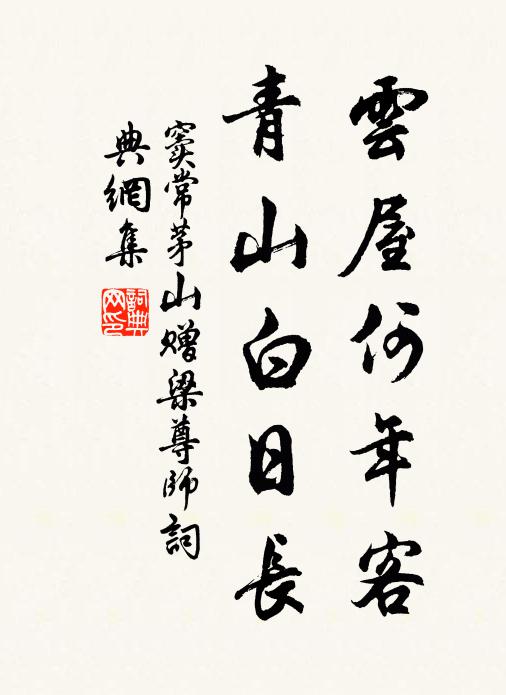 雲屋何年客
青山白日長
竇常茅山贈梁尊師詞
典網集
詞典
网印